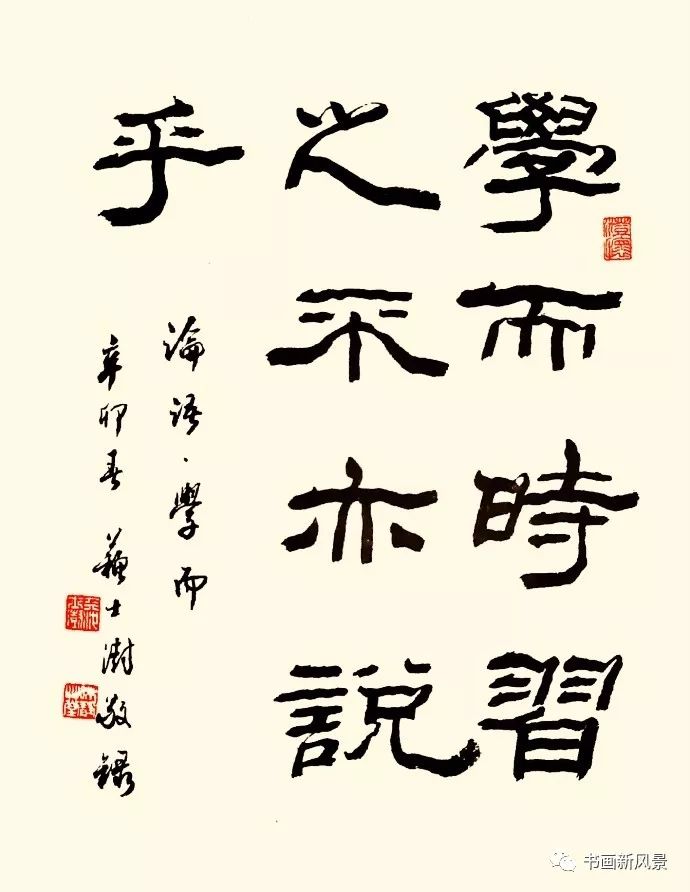 學而時習
之不亦説
乎
論語·學而
辛卯春 蘇士澍敬録
书画新风景